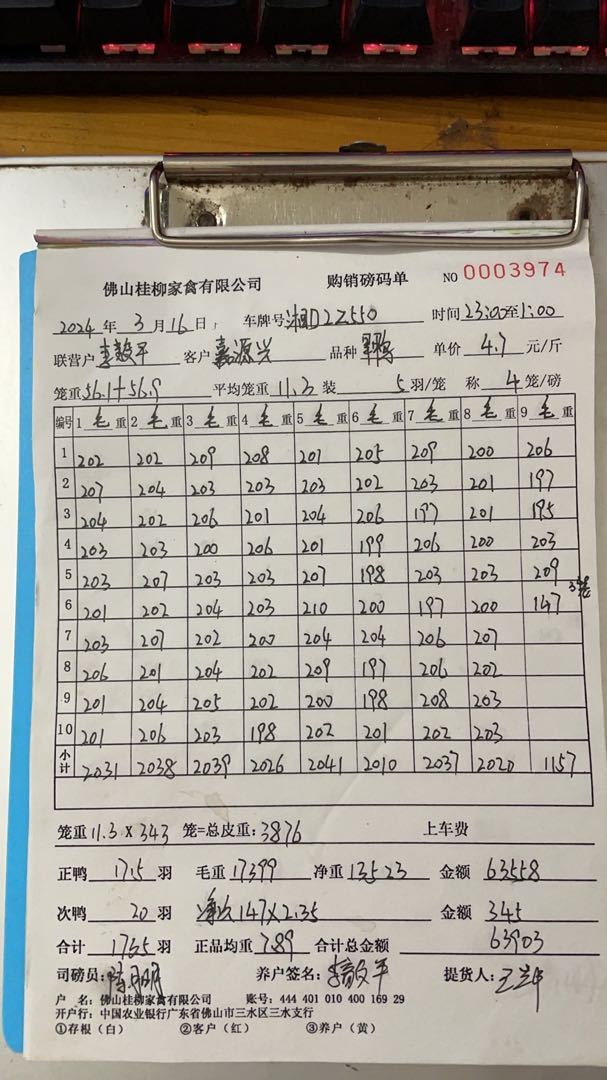 佛山桂柳家禽有限公司 购销磅码单 NO 0003974
2024 年 3 月 16 日 车牌号 湘D2Z550 时间 23:00至1:00
联营户 客户 嘉源兴 品种 单价 4.7 元/斤
笼重 56.1+56.9 平均笼重 11.3 装 5 羽/笼 称 4 笼/磅
编号 1 毛 重 2 毛 重 3 毛 重 4 毛 重 5 毛 重 6 毛 重 7 毛 重 8 毛 重 9 毛 重
1 202 202 209 208 201 205 209 200 206
2 207 204 203 203 203 202 203 201 197
3 204 202 206 201 204 206 197 201 195
4 203 203 200 206 201 199 206 200 203
5 203 207 203 203 207 198 203 203 209
6 201 202 204 203 210 200 197 200 147
7 203 207 202 200 204 204 206 207
8 206 201 204 202 209 197 206 202
9 201 204 205 202 200 198 208 203
10 201 206 203 198 202 201 202 203
小计 2031 2038 2039 2026 2041 2010 2037 2020 1157
笼重 11.3 X 343 笼=总皮重: 3876 上车费
正鸭 1715 羽 毛重 17399 净重 13523 金额 63558
次鸭 20 羽 147X2.35 金额 345
合计 1735 羽 正品均重 7.89 合计总金额 63903
司磅员: 养户签名: 提货人:
户 名: 佛山桂柳家禽有限公司 账号: 444 401 010 400 169 29
开户行: 中国农业银行广东省佛山市三水区三水支行
①存根（白） ②客户（红） ③养户（黄）